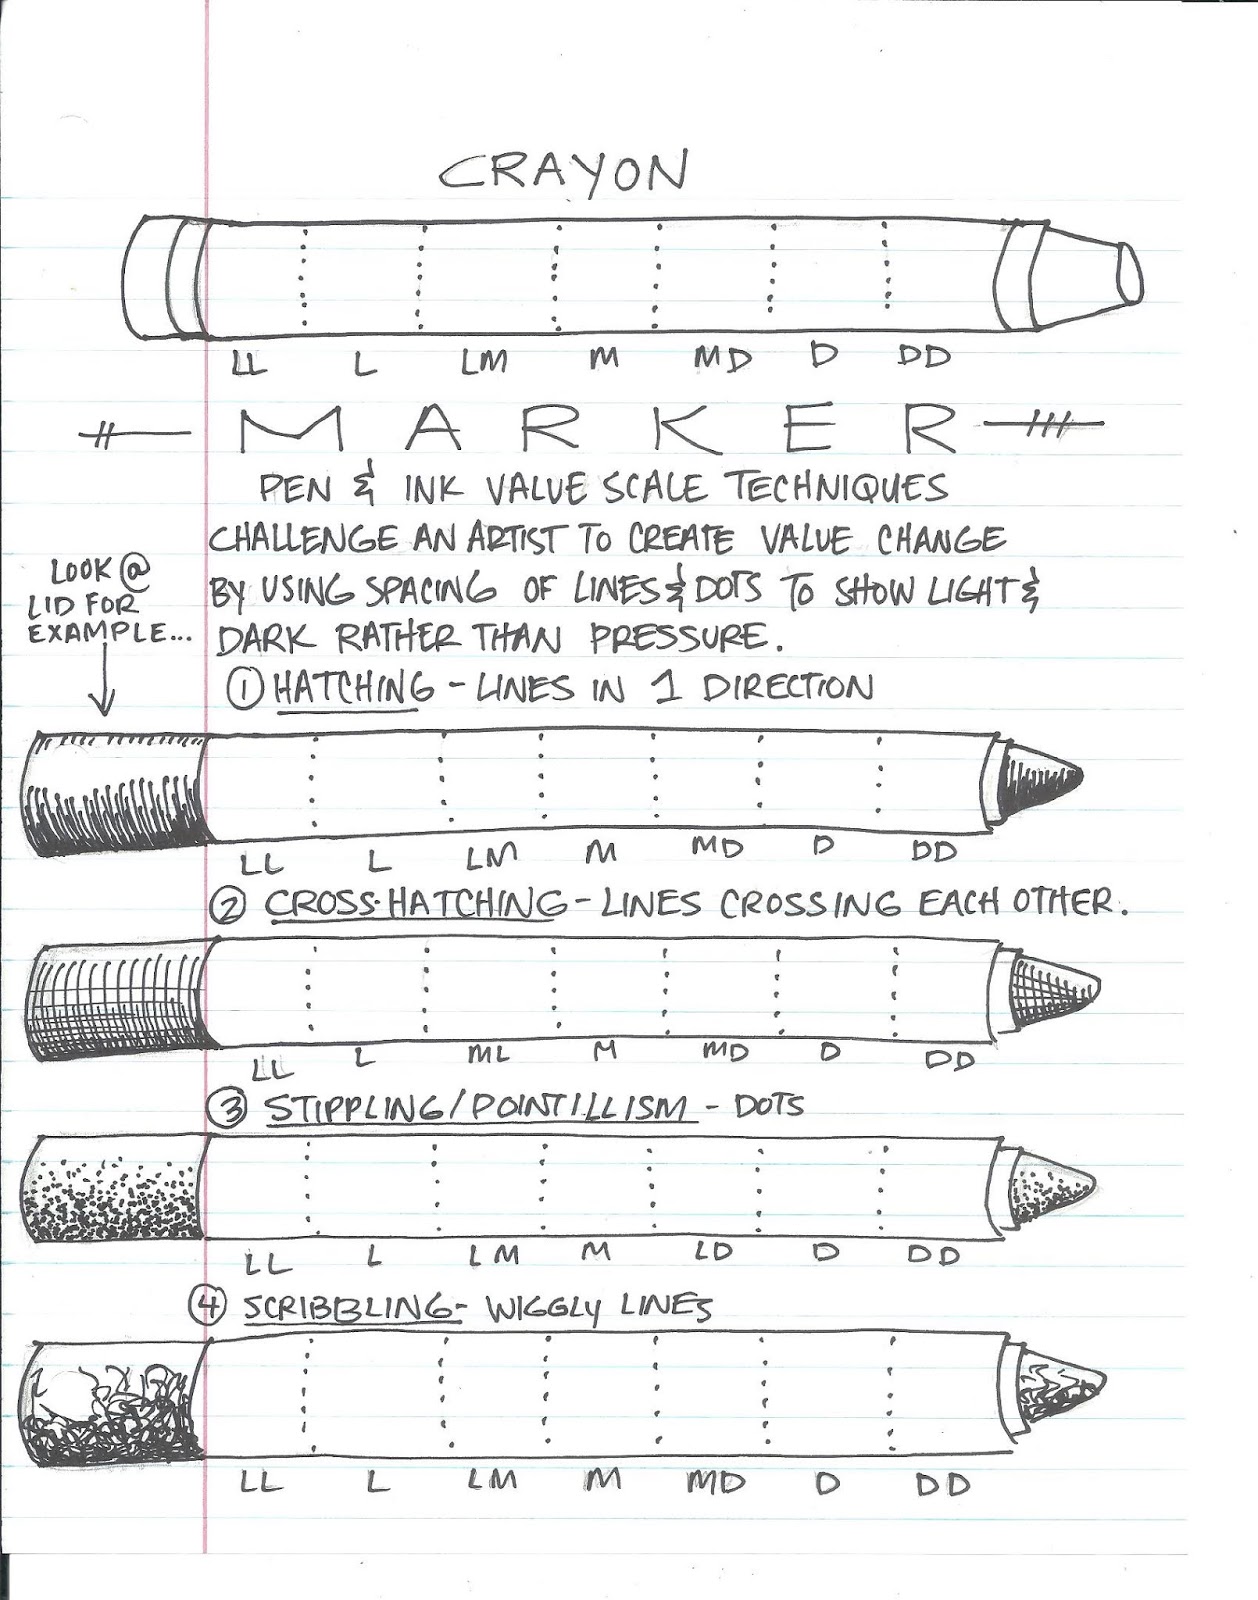 CRAYON
LL L LM M MD D DD
MARKER
PEN & INK VALUE SCALE TECHNIQUES
CHALLENGE AN ARTIST TO CREATE VALUE CHANGE
BY USING SPACING OF LINES & DOTS TO SHOW LIGHT &
DARK RATHER THAN PRESSURE.
LOOK @
LID FOR
EXAMPLE...
① HATCHING - LINES IN 1 DIRECTION
LL L LM M MD D DD
② CROSS-HATCHING - LINES CROSSING EACH OTHER.
LL L ML M MD D DD
③ STIPPLING/POINTILLISM - DOTS
LL L LM M LD D DD
④ SCRIBBLING - WIGGLY LINES
LL L LM M MD D DD